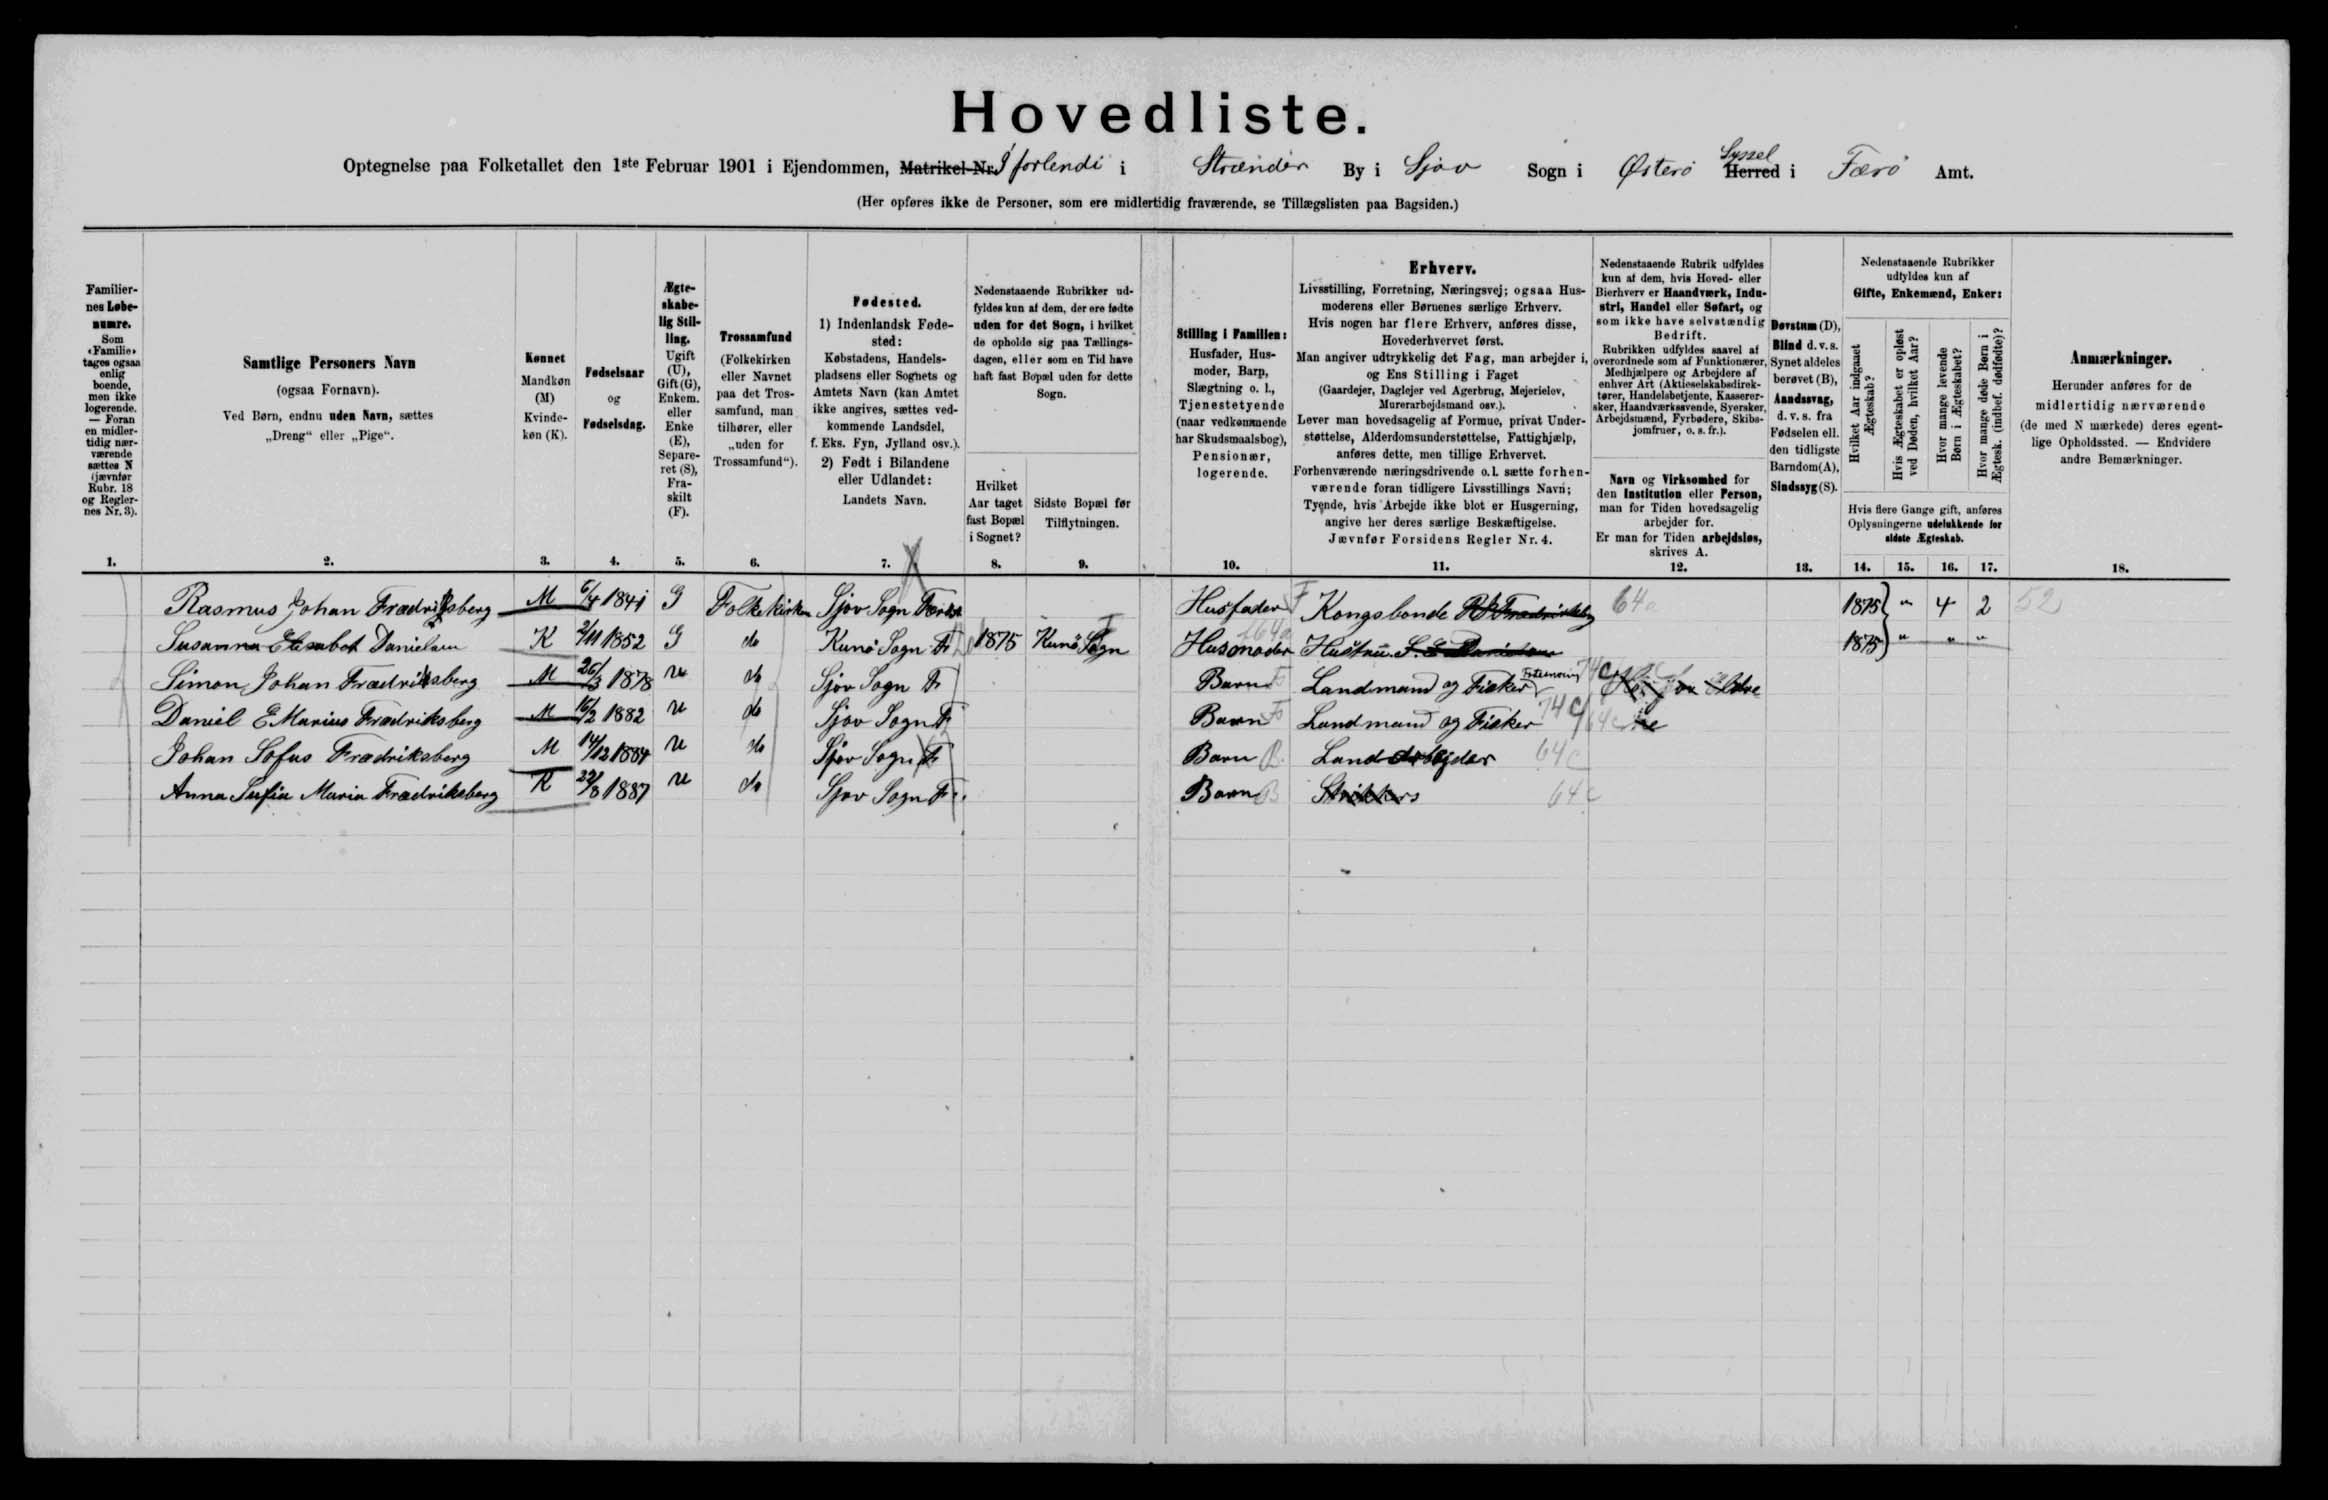 Hovedliste.
Optegnelse paa Folketallet den 1ste Februar 1901 i Ejendommen, Matrikel-Nr. Í forlendi i Strænder By i Sjov Sogn i Østerø Herred Syssel i Færø Amt.
(Her opføres ikke de Personer, som ere midlertidig fraværende, se Tillægslisten paa Bagsiden.)
Familiernes Løbenumre. Som «Familie» tages ogsaa enlig boende, men ikke logerende. — Foran en midlertidig nærværende sættes N (jævnfør Rubr. 18 og Reglernes Nr. 3).
Samtlige Personers Navn
(ogsaa Fornavn).
Ved Børn, endnu uden Navn, sættes
„Dreng“ eller „Pige“.
Kønnet Mandkøn (M) Kvindekøn (K).
Fødselsaar og Fødselsdag.
Ægteskabelig Stilling. Ugift (U), Gift (G), Enkem. eller Enke (E), Separeret (S), Fraskilt (F).
Trossamfund (Folkekirken eller Navnet paa det Trossamfund, man tilhører, eller „uden for Trossamfund“).
Fødested.
1) Indenlandsk Fødested: Købstadens, Handelspladsens eller Sognets og Amtets Navn (kan Amtet ikke angives, sættes vedkommende Landsdel, f. Eks. Fyn, Jylland osv.).
2) Født i Bilandene eller Udlandet: Landets Navn.
Nedenstaaende Rubrikker udfyldes kun af dem, der ere fødte uden for det Sogn, i hvilket de opholde sig paa Tællingsdagen, eller som en Tid have haft fast Bopæl uden for dette Sogn.
Hvilket Aar taget fast Bopæl i Sognet?
Sidste Bopæl før Tilflytningen.
Stilling i Familien: Husfader, Husmoder, Barn, Slægtning o. l., Tjenestetyende (naar vedkommende har Skudsmaalsbog), Pensionær, logerende.
Erhverv.
Livsstilling, Forretning, Næringsvej; ogsaa Husmoderens eller Børnenes særlige Erhverv.
Hvis nogen har flere Erhverv, anføres disse, Hovederhvervet først.
Man angiver udtrykkelig det Fag, man arbejder i, og Ens Stilling i Faget
(Gaardejer, Daglejer ved Agerbrug, Mejerielev, Murerarbejdsmand osv.).
Lever man hovedsagelig af Formue, privat Understøttelse, Alderdomsunderstøttelse, Fattighjælp, anføres dette, men tillige Erhvervet.
Forhenværende næringsdrivende o. l. sætte forhenværende foran tidligere Livsstillings Navn;
Tyende, hvis Arbejde ikke blot er Husgerning, angive her deres særlige Beskæftigelse.
Jævnfør Forsidens Regler Nr. 4.
Nedenstaaende Rubrik udfyldes kun af dem, hvis Hoved- eller Bierhverv er Haandværk, Industri, Handel eller Søfart, og som ikke have selvstændig Bedrift.
Rubrikken udfyldes saavel af overordnede som af Funktionærer, Medhjælpere og Arbejdere af enhver Art (Aktieselskabsdirektører, Handelsbetjente, Kasserersker, Haandværkssvende, Syersker, Arbejdsmænd, Fyrbødere, Skibsjomfruer, o. s. fr.).
Navn og Virksomhed for den Institution eller Person, man for Tiden hovedsagelig arbejder for.
Er man for Tiden arbejdsløs, skrives A.
Døvstum (D), Blind d. v. s. Synet aldeles berøvet (B), Aandssvag, d. v. s. fra Fødselen ell. den tidligste Barndom (A), Sindssyg (S).
Nedenstaaende Rubrikker udfyldes kun af Gifte, Enkemænd, Enker:
Hvilket Aar indgaaet Ægteskab?
Hvis Ægteskabet er opløst ved Døden, hvilket Aar?
Hvor mange levende Børn i Ægteskabet?
Hvor mange døde Børn i Ægtesk. (indbef. dødfødte)?
Hvis flere Gange gift, anføres Oplysningerne udelukkende for sidste Ægteskab.
Anmærkninger.
Herunder anføres for de midlertidig nærværende (de med N mærkede) deres egentlige Opholdssted. — Endvidere andre Bemærkninger.
1. 2. 3. 4. 5. 6. 7. 8. 9. 10. 11. 12. 13. 14. 15. 16. 17. 18.
Rasmus Johan Frædriksberg M 6/4 1841 G Folkekirken Sjov Sogn Husfader F Kongsbonde 64a 1875 " 4 2 52
Susanna Elesabet Danielsen K 2/11 1852 G do Kunø Sogn F 1875 Kunø Sogn Husmoder Hustru 1875 " " "
Simon Johan Frædriksberg M 26/3 1878 U do Sjov Sogn F Barn F Landmand og Fisker 74c
Daniel E Marius Frædriksberg M 16/2 1882 U do Sjov Sogn F Barn F Landmand og Fisker 74c 64c
Johan Sofus Frædriksberg M 14/12 1884 U do Sjov Sogn F Barn B Landarbejder 64c
Anna Sufia Maria Frædriksberg K 22/8 1887 U do Sjov Sogn F. Barn B 64c